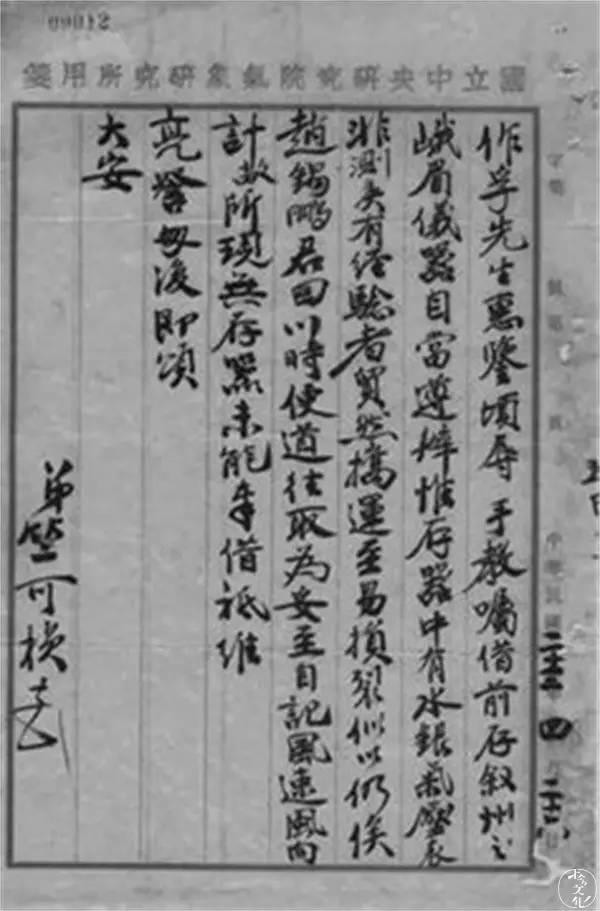 09012
國立中央研究院氣象研究所用箋
作孚先生惠鑒頃辱 手教囑借前存叙州之
峨眉儀器自當遵辦惟存器中有水銀氣壓表
非測夫有經驗者貿然攜運至易損裂似以仍俟
趙錫鵬君回川時便道往取為妥至自記風速風向
計敝所現無存器未能奉借祗維
亮詧毋復即頌
大安
弟竺可楨
中華民國
二十三 四 二十六日